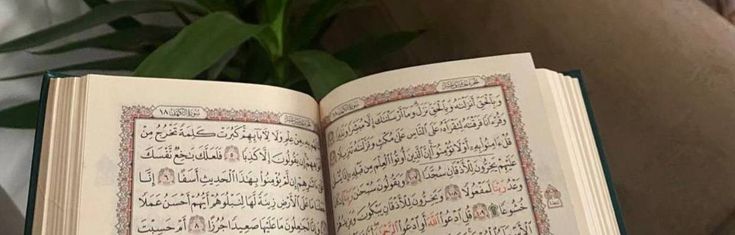 وَبِٱلْحَقِّ أَنزَلْنَٰهُ وَبِٱلْحَقِّ نَزَلَ وَمَآ أَرْسَلْنَٰكَ إِلَّا مُبَشِّرًا وَنَذِيرًا
وَقُرْءَانًا فَرَقْنَٰهُ لِتَقْرَأَهُۥ عَلَى ٱلنَّاسِ عَلَىٰ مُكْثٍ وَنَزَّلْنَٰهُ تَنزِيلًا
قُلْ ءَامِنُوا۟ بِهِۦٓ أَوْ لَا تُؤْمِنُوٓا۟ إِنَّ ٱلَّذِينَ أُوتُوا۟ ٱلْعِلْمَ مِن قَبْلِهِۦٓ إِذَا يُتْلَىٰ
عَلَيْهِمْ يَخِرُّونَ لِلْأَذْقَانِ سُجَّدًا ١٠٧ وَيَقُولُونَ سُبْحَٰنَ رَبِّنَآ
وَعْدُ رَبِّنَا لَمَفْعُولًا ١٠٨ وَيَخِرُّونَ لِلْأَذْقَانِ يَبْكُونَ وَيَزِيدُهُمْ
خُشُوعًا ١٠٩ قُلِ ٱدْعُوا۟ ٱللَّهَ أَوِ ٱدْعُوا۟ ٱلرَّحْمَٰنَ
سُورَةُ الكَهْفِ ١٨
بِهِۦ مِنْ عِلْمٍ وَلَا لِءَابَآئِهِمْ كَبُرَتْ كَلِمَةً تَخْرُجُ مِنْ
أَفْوَٰهِهِمْ إِن يَقُولُونَ إِلَّا كَذِبًا ٥ فَلَعَلَّكَ بَٰخِعٌ نَّفْسَكَ
عَلَىٰٓ ءَاثَٰرِهِمْ إِن لَّمْ يُؤْمِنُوا۟ بِهَٰذَا ٱلْحَدِيثِ أَسَفًا ٦ إِنَّا
جَعَلْنَا مَا عَلَى ٱلْأَرْضِ زِينَةً لَّهَا لِنَبْلُوَهُمْ أَيُّهُمْ أَحْسَنُ عَمَلًا
وَإِنَّا لَجَٰعِلُونَ مَا عَلَيْهَا صَعِيدًا جُرُزًا ٨ أَمْ حَسِبْتَ